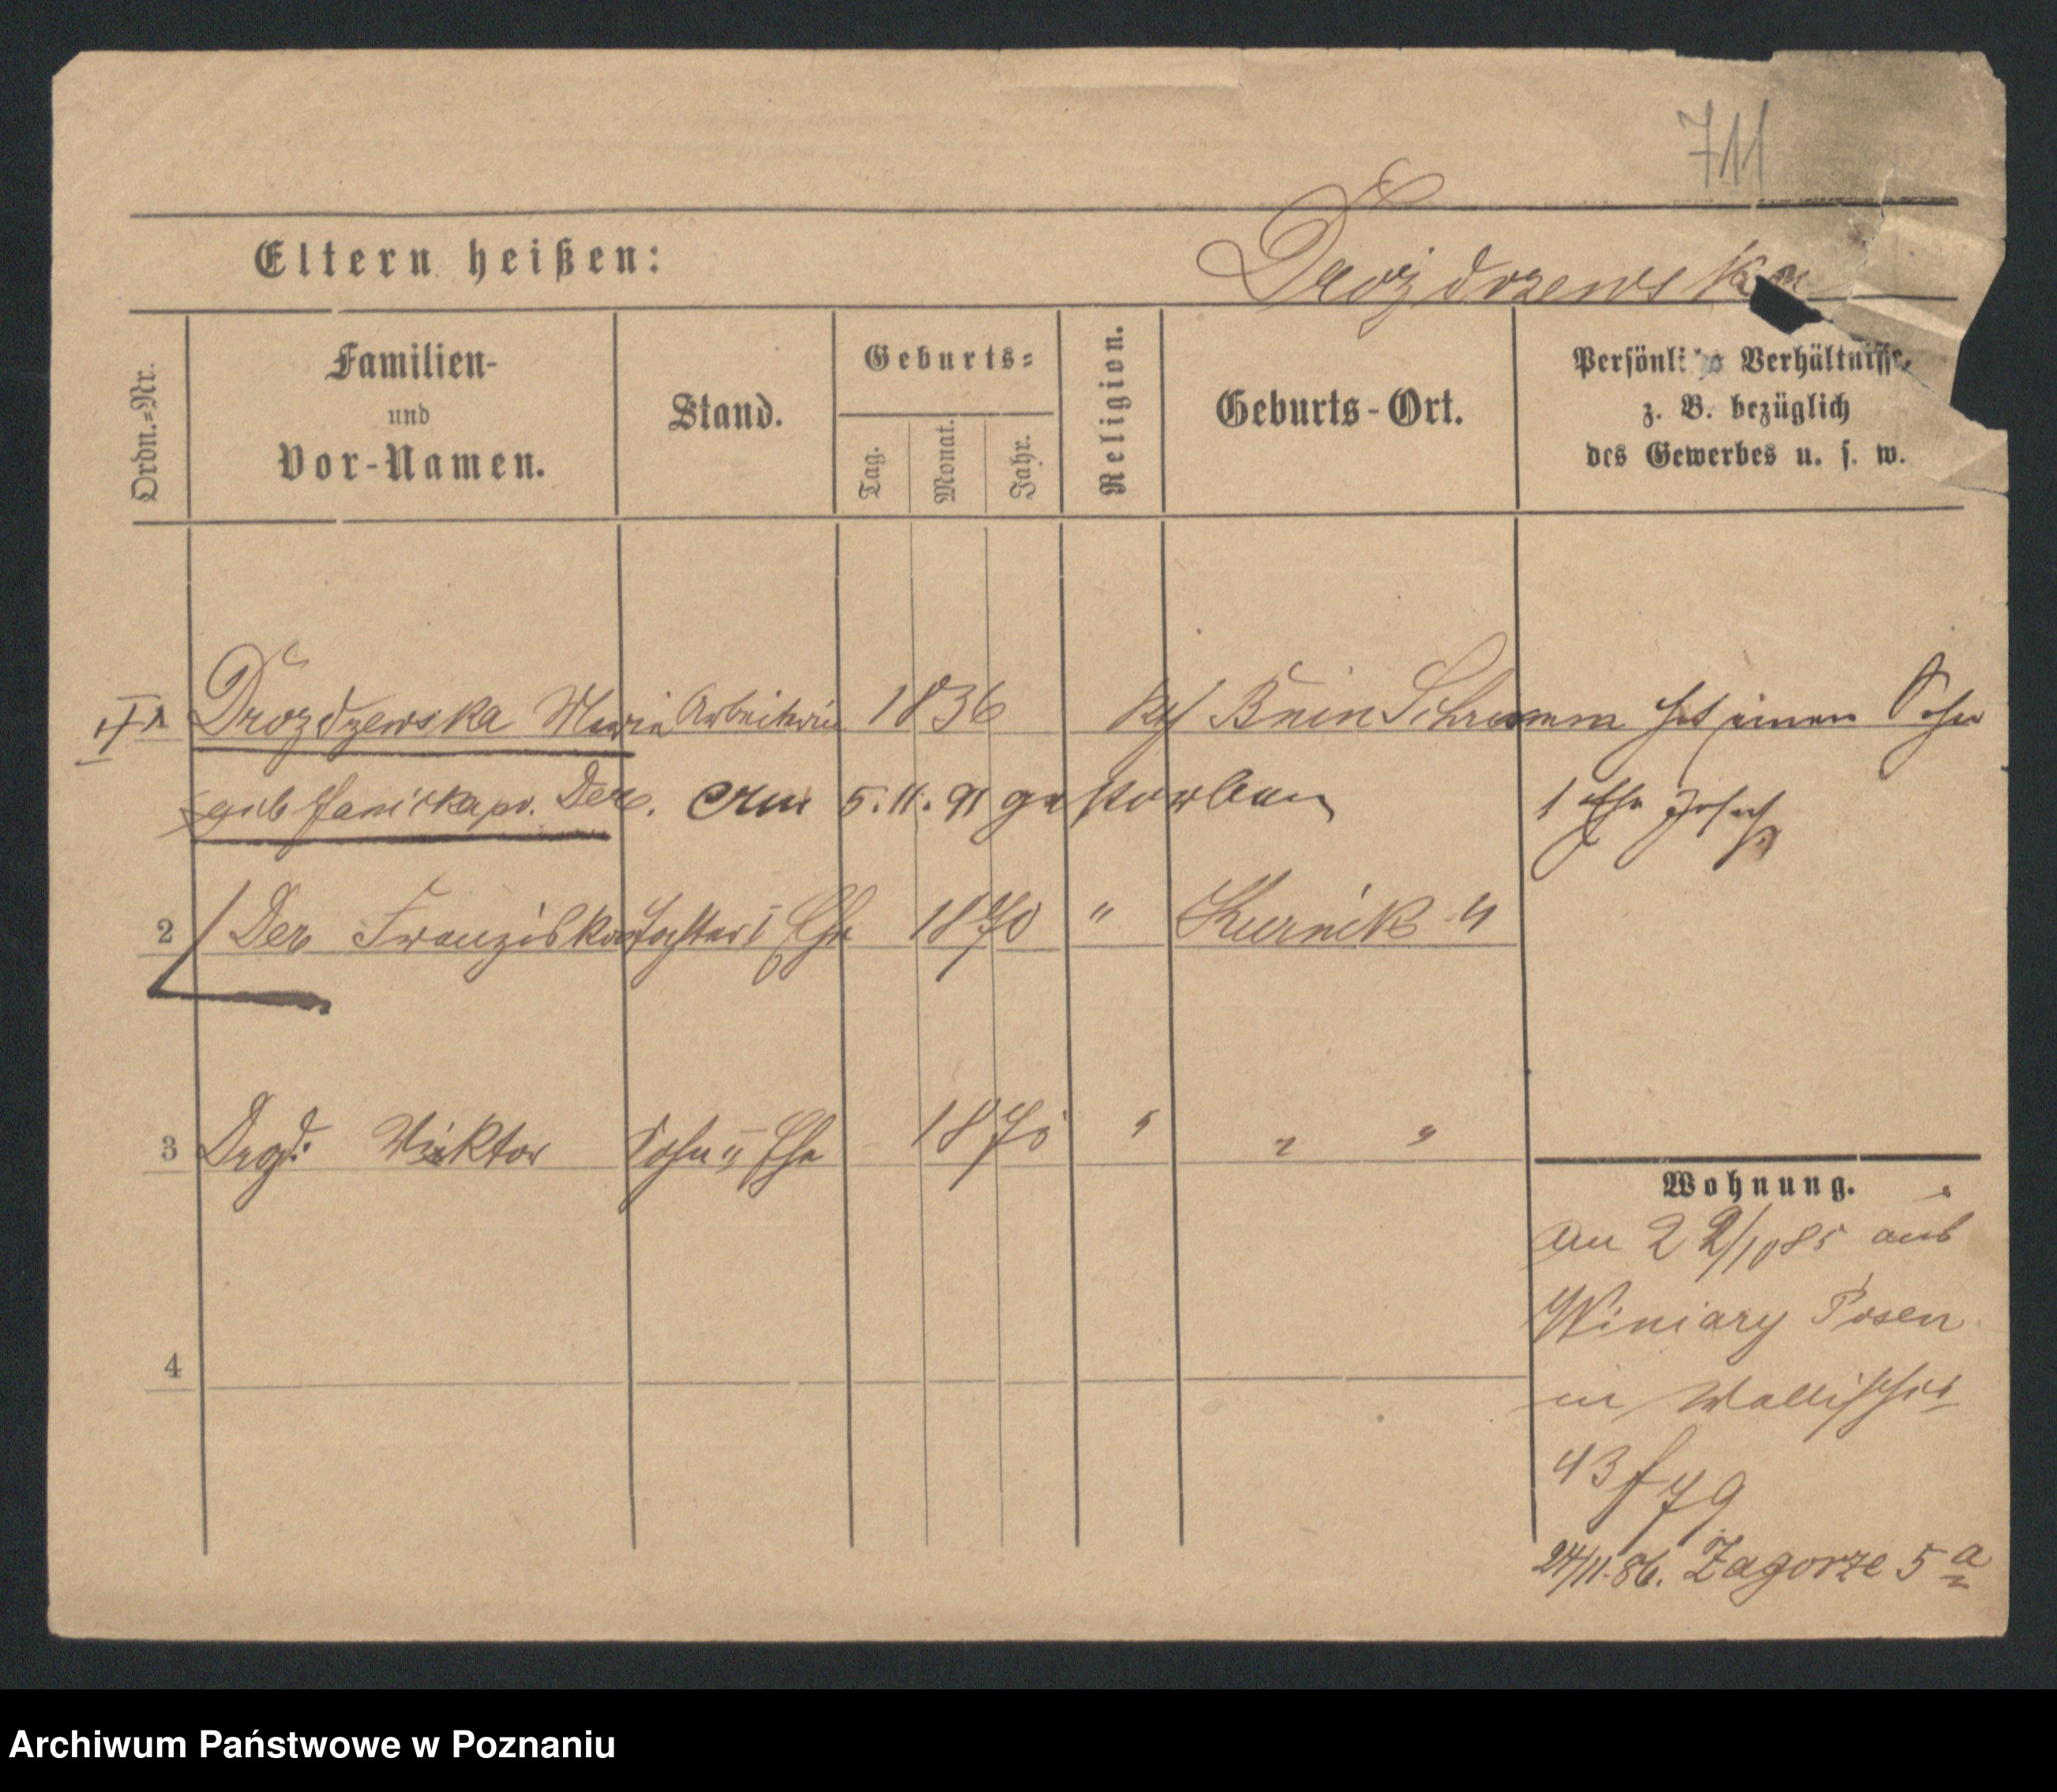 711
Eltern heißen:
Drozdrzewska
Ordn.=Nr.
Familien-
und
Vor-Namen.
Stand.
Geburts=
Tag.
Monat.
Jahr.
Religion.
Geburts-Ort.
Persönliche Verhältnisse,
z. B. bezüglich
des Gewerbes u. s. w.
Drozdzewska Maria Arbeiterin 1836 kth Bnin Schrimm hat einen Sohn
geb Am 5.11.91 gestorben
1 Ehe Joseph
2 Der Franziska Tochter I Ehe 1870 " Kurnik "
3 Drozd: Wiktor Sohn II Ehe 1875 " " "
Wohnung.
Am 22/10 85 aus
Winiary Posen
in Wallischei
43
24/11.86. Zagorze 5a
4
Archiwum Państwowe w Poznaniu